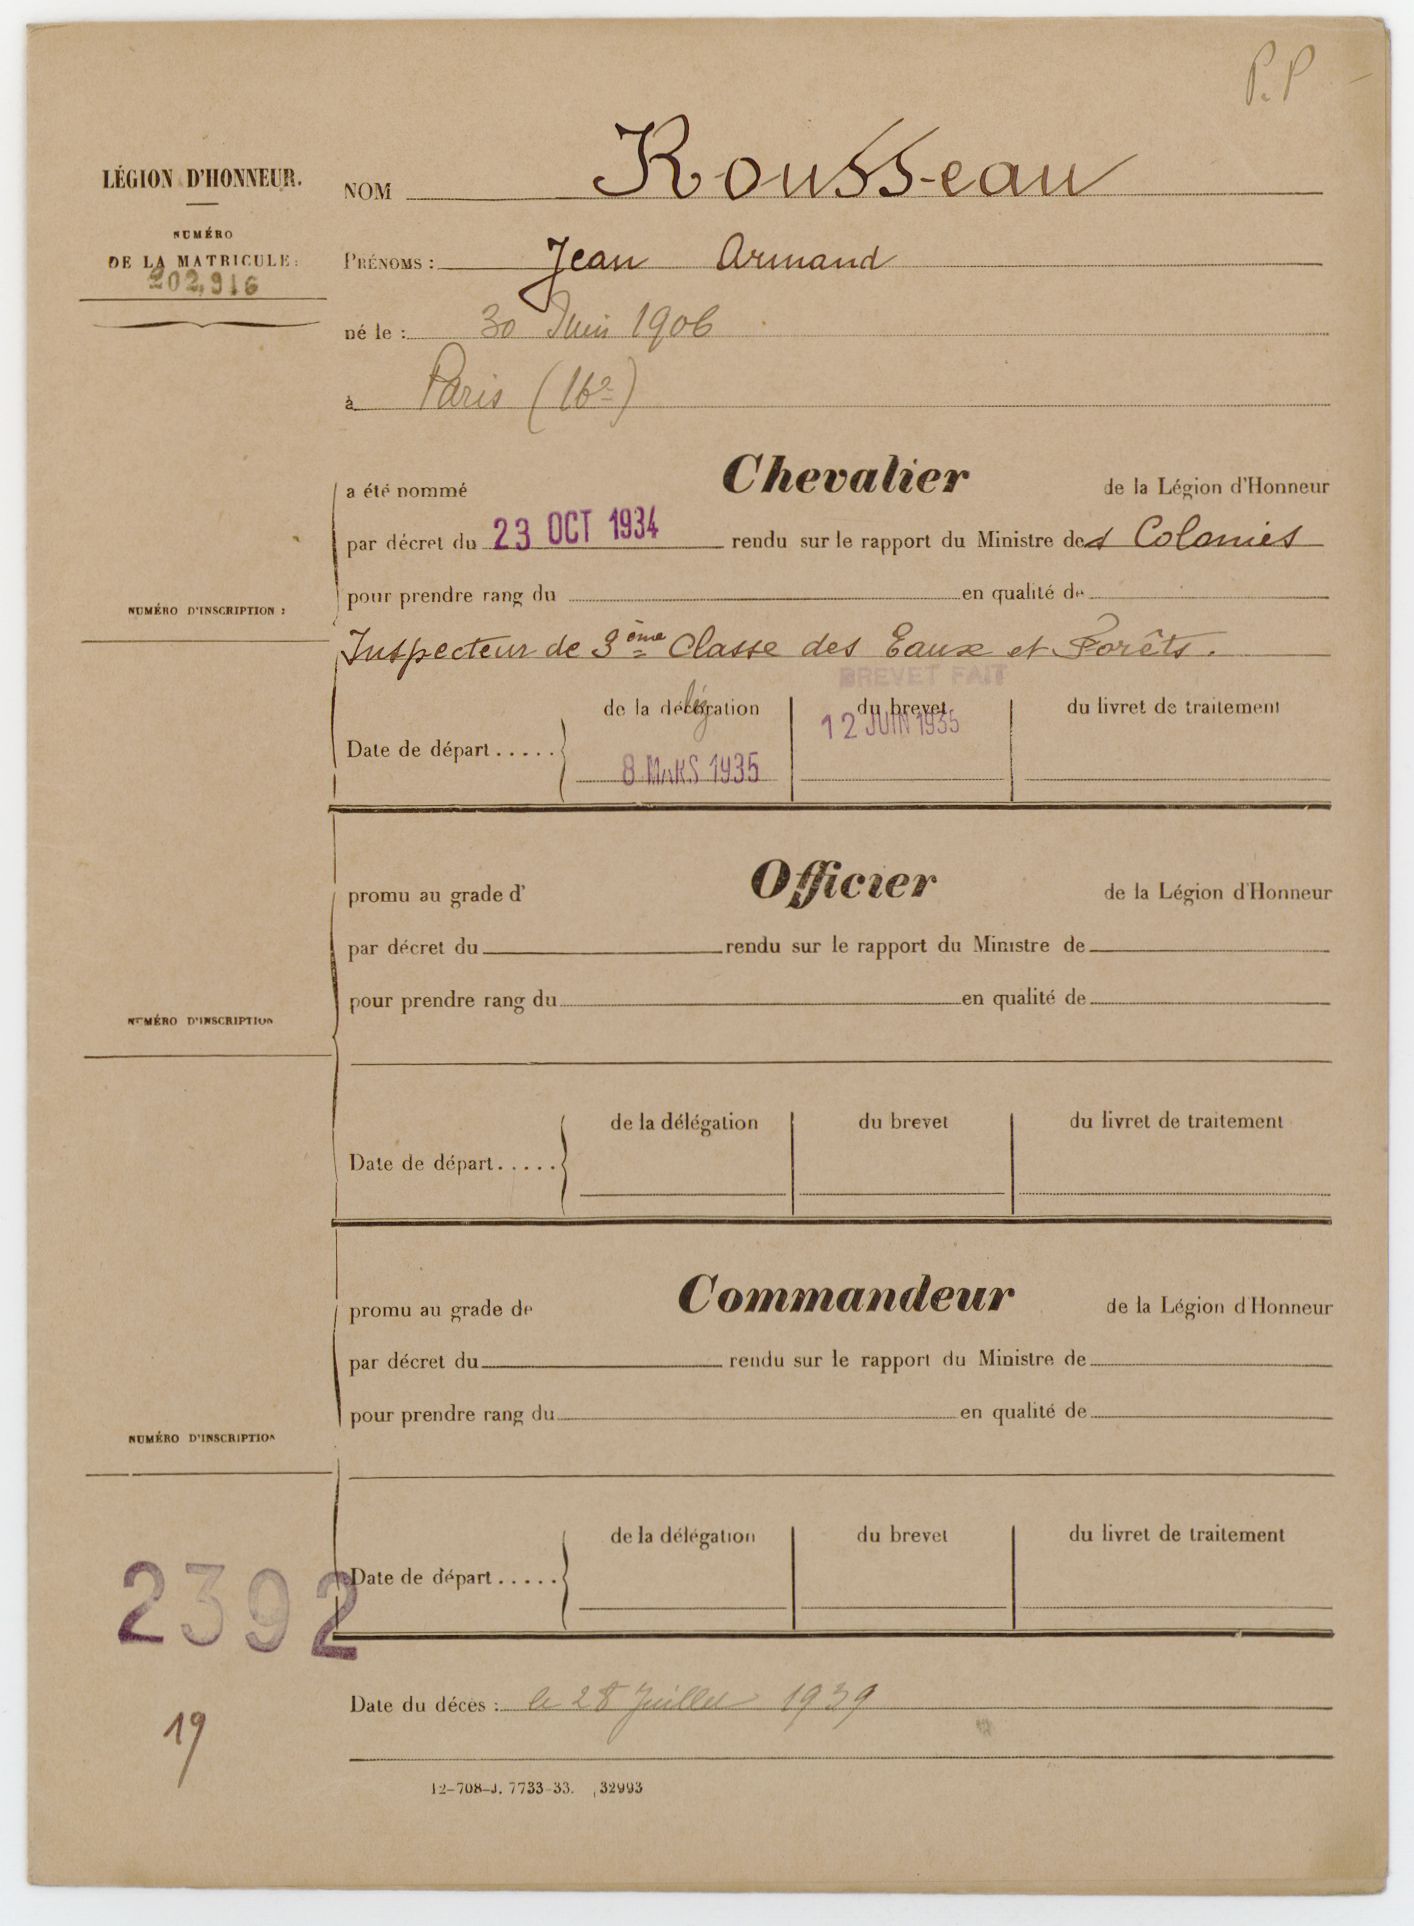 P.P
LÉGION D'HONNEUR.
NUMÉRO
DE LA MATRICULE:
202,916
NOM Rousseau
PRÉNOMS : Jean Armand
né le : 30 Juin 1906
à Paris (16e)
a été nommé Chevalier de la Légion d'Honneur
par décret du 23 OCT 1934 rendu sur le rapport du Ministre des Colonies
pour prendre rang du en qualité de
NUMÉRO D'INSCRIPTION :
Inspecteur de 3ème Classe des Eaux et Forêts.
BREVET FAIT
de la décoration du brevet du livret de traitement
12 JUIN 1935
Date de départ.....
8 MARS 1935
promu au grade d' Officier de la Légion d'Honneur
par décret du rendu sur le rapport du Ministre de
pour prendre rang du en qualité de
NUMÉRO D'INSCRIPTION
de la délégation du brevet du livret de traitement
Date de départ.....
promu au grade de Commandeur de la Légion d'Honneur
par décret du rendu sur le rapport du Ministre de
pour prendre rang du en qualité de
NUMÉRO D'INSCRIPTION
de la délégation du brevet du livret de traitement
Date de départ.....
2392
Date du décès : le 28 Juillet 1939
19
12-708-J. 7733-33. 32993